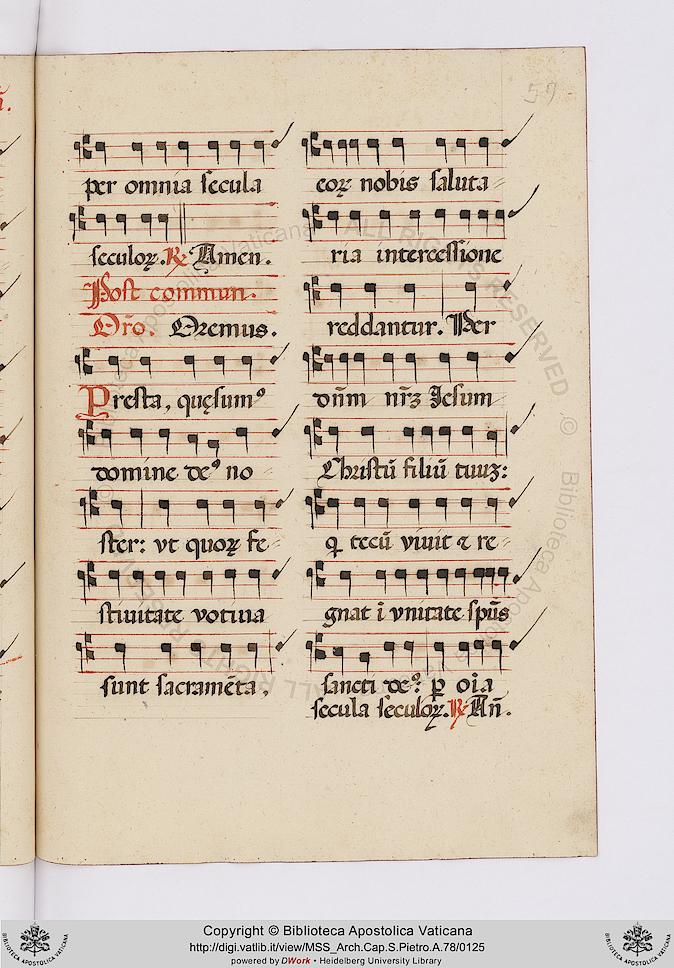 57
per omnia secula
seculoꝝ. ℟ Amen.
Post commun.
Or̃o. Oremus.
Presta, quęsumꝰ
domine deꝰ no
ster: vt quoꝝ fe
stiuitate votiua
sunt sacramẽta,
eoꝝ nobis saluta
ria intercessione
reddantur. Per
dñm nr̃ꝫ Iesum
Christũ filiũ tuuꝫ:
ꝗ tecũ viuit ⁊ re
gnat ĩ vnitate spũs
sancti deꝰ: ꝑ oĩa
secula seculoꝝ. ℟ Añ.
ALL RIGHTS RESERVED
© Biblioteca Apostolica Vaticana
Copyright © Biblioteca Apostolica Vaticana
http://digi.vatlib.it/view/MSS_Arch.Cap.S.Pietro.A.78/0125
powered by DWork • Heidelberg University Library
BIBLIOTECA APOSTOLICA VATICANA
BIBLIOTECA APOSTOLICA VATICANA